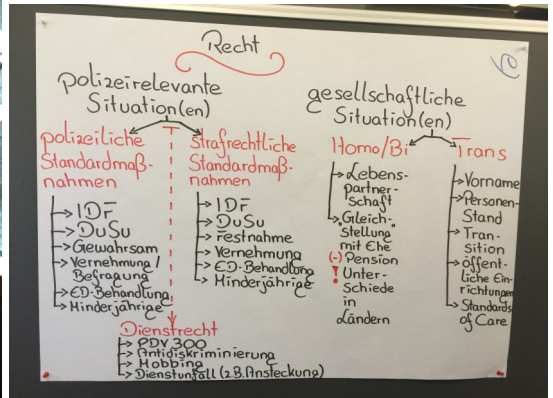 Recht
polizeirelevante
Situation(en)
polizeiliche
Standardmaß-
nahmen
→ IDF
→ DuSu
→ Gewahrsam
→ Vernehmung/
Befragung
→ ED-Behandlung
→ Minderjährige
strafrechtliche
Standardmaß-
nahmen
→ IDF
→ DuSu
→ Festnahme
→ Vernehmung
→ ED-Behandlung
→ Minderjährige
Dienstrecht
→ PDV 300
→ Antidiskriminierung
→ Mobbing
→ Dienstunfall (z.B. Ansteckung)
gesellschaftliche
Situation(en)
Homo/Bi
→ Lebens-
partner-
schaft
→ Gleich-
stellung
mit Ehe
(-) Pension
! Unter-
schiede
in
Ländern
Trans
→ Vorname
→ Personen-
stand
→ Tran-
sition
→ öffent-
liche Ein-
richtungen
→ Standards
of Care